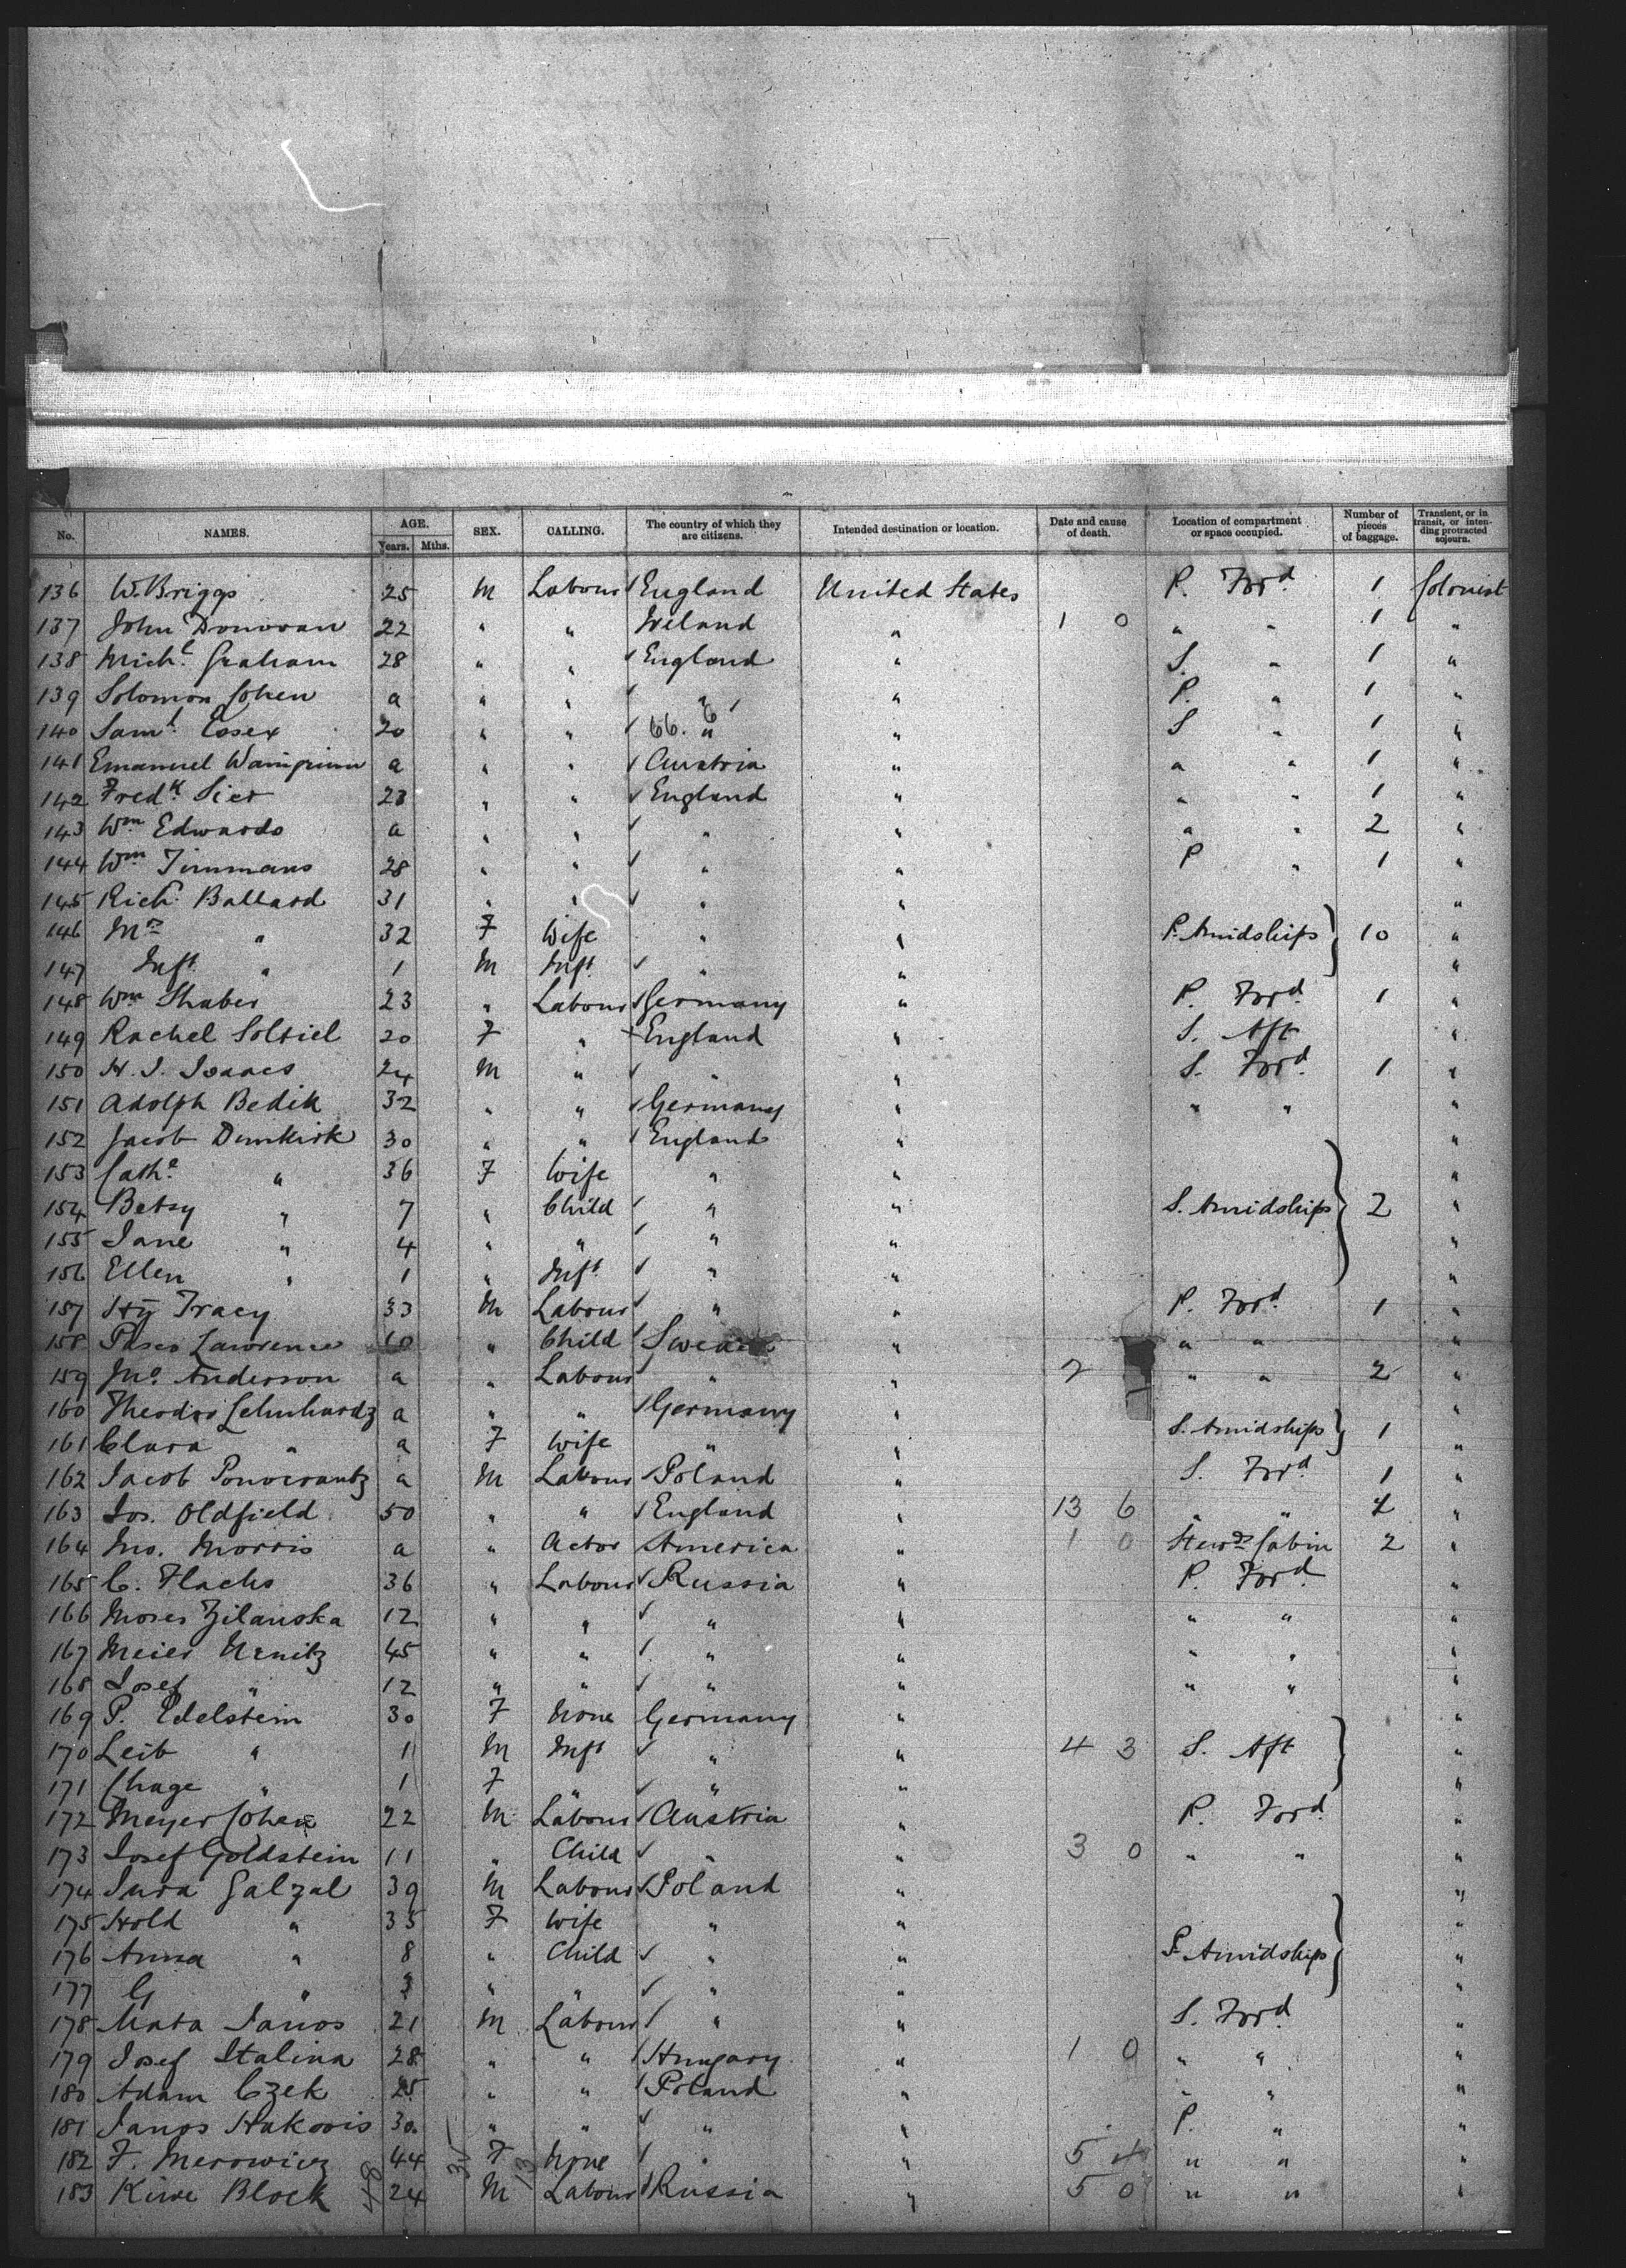 No. NAMES. AGE. Years. Mths. SEX. CALLING. The country of which they are citizens. Intended destination or location. Date and cause of death. Location of compartment or space occupied. Number of pieces of baggage. Transient, or in transit, or intending protracted sojourn.
136 W. Briggs 25 M Labour England United States P. Ford 1 Colonist
137 John Donovan 22 " " Ireland " 1 0 " " 1 "
138 Michl Graham 28 " " England " S. " 1 "
139 Solomon Cohen a " " " " P. " 1 "
140 Saml Essex 20 " " 66. 6 " " S " 1 "
141 Emanuel a " " Austria " " " 1 "
142 Fredk Sier 23 " " England " " " 1 "
143 Wm Edwards a " " " " " " 2 "
144 Wm Timmans 28 " " " " P " 1 "
145 Richd Ballard 31 " " " " "
146 Mrs " 32 F Wife " " P. Amidships 10 "
147 Inft " 1 M Inft " " "
148 Wm Shaber 23 " Labour Germany " P. Ford 1 "
149 Rachel Soltiel 20 F " England " S. Aft "
150 H. J. Isaacs 24 M " " " S. Ford 1 "
151 Adolph Bedik 32 " " Germany " " " "
152 Jacob Dunkirk 30 " " England " "
153 Cathe " 36 F Wife " " "
154 Betsy " 7 " Child " " S. Amidships 2 "
155 Jane " 4 " " " " "
156 Ellen " 1 " Inft " " "
157 Hy Tracy 33 M Labour " " P. Ford 1 "
158 Lawrence 10 " Child " " " "
159 Jno. Anderson a " Labour " " 2 " " 2 "
160 Theodor Lehnhardz a " " Germany " "
161 Clara " a F Wife " " S. Amidships 1 "
162 Jacob a M Labour Poland " S. Ford 1 "
163 Jos. Oldfield 50 " " England " 13 6 " " "
164 Jno. Morris a " Actor America " 1 0 Stewds Cabin 2 "
165 C. Flachs 36 " Labour Russia " P. Ford "
166 Moses Zilanska 12 " " " " " " "
167 Meier 45 " " " " " " "
168 Josef " 12 " " " " " " "
169 P. Edelstein 30 F None Germany " "
170 Leib " 1 M Inft " " 4 3 S. Aft "
171 Chage " 1 F " " " "
172 Meyer Cohen 22 M Labour Austria " P. Ford "
173 Josef Goldstein 11 " Child " " 3 0 " " "
174 Jura Galzal 39 M Labour Poland " "
175 Hold " 35 F Wife " " "
176 Anna " 8 " Child " " P. Amidships "
177 G " " " " " "
178 Mata Janos 21 M Labour " " S. Ford "
179 Josef Stalina 28 " " Hungary " 1 0 " " "
180 Adam Czek 25 " " Poland " " " "
181 Janos Hakovis 30 " " " " P. " "
182 F. Merowicz 44 F None " " 5 4 " " "
183 Kiwe Block 24 M Labour Russia " 5 0 " " "
48 35 13